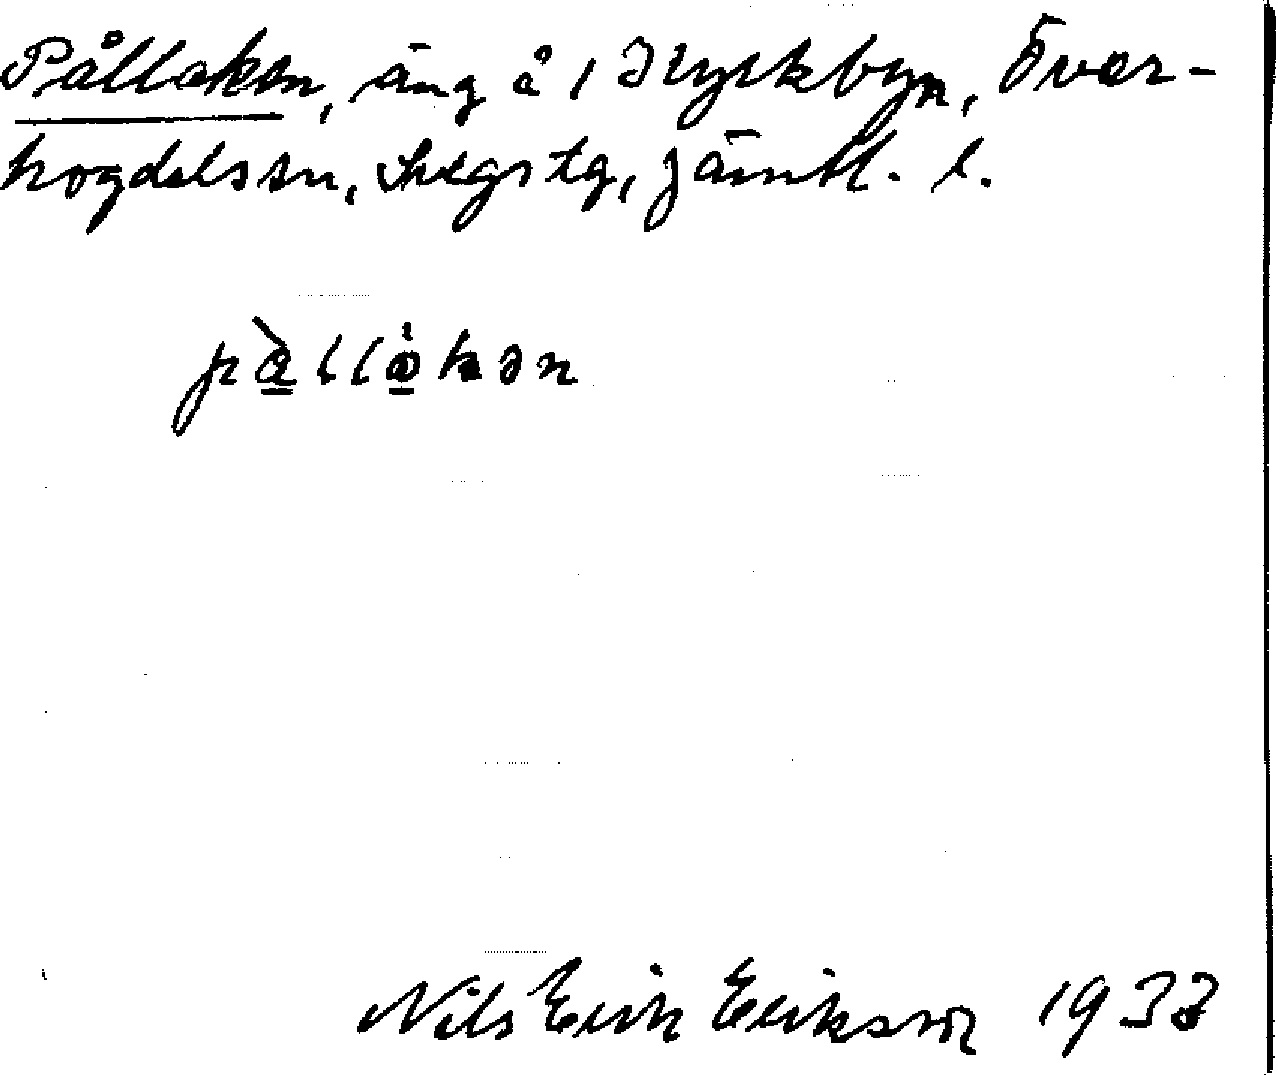 Pållaken, äng å 1 Kyrkbyn, Över-
hogdels sn, Svegs tg, Jämtl. l.
pàllákən
Nils Erik Erikson 1933